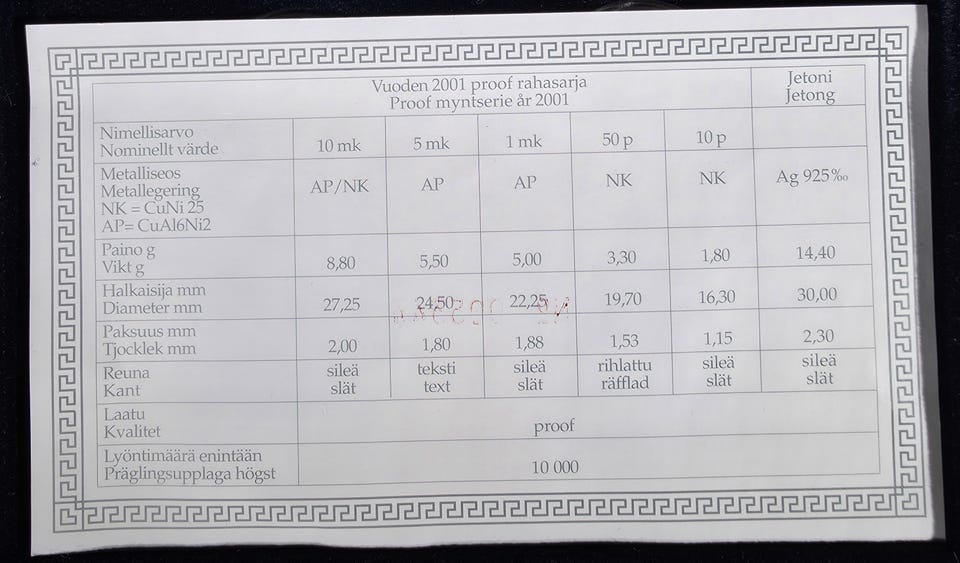 Vuoden 2001 proof rahasarja
Proof myntserie år 2001
Jetoni
Jetong
Nimellisarvo
Nominellt värde
10 mk 5 mk 1 mk 50 p 10 p
Metalliseos
Metallegering
NK = CuNi 25
AP= CuAl6Ni2
AP/NK AP AP NK NK Ag 925‰
Paino g
Vikt g
8,80 5,50 5,00 3,30 1,80 14,40
Halkaisija mm
Diameter mm
27,25 24,50 22,25 19,70 16,30 30,00
Paksuus mm
Tjocklek mm
2,00 1,80 1,88 1,53 1,15 2,30
Reuna
Kant
sileä teksti sileä rihlattu sileä sileä
slät text slät räfflad slät slät
Laatu
Kvalitet
proof
Lyöntimäärä enintään
Präglingsupplaga högst
10 000